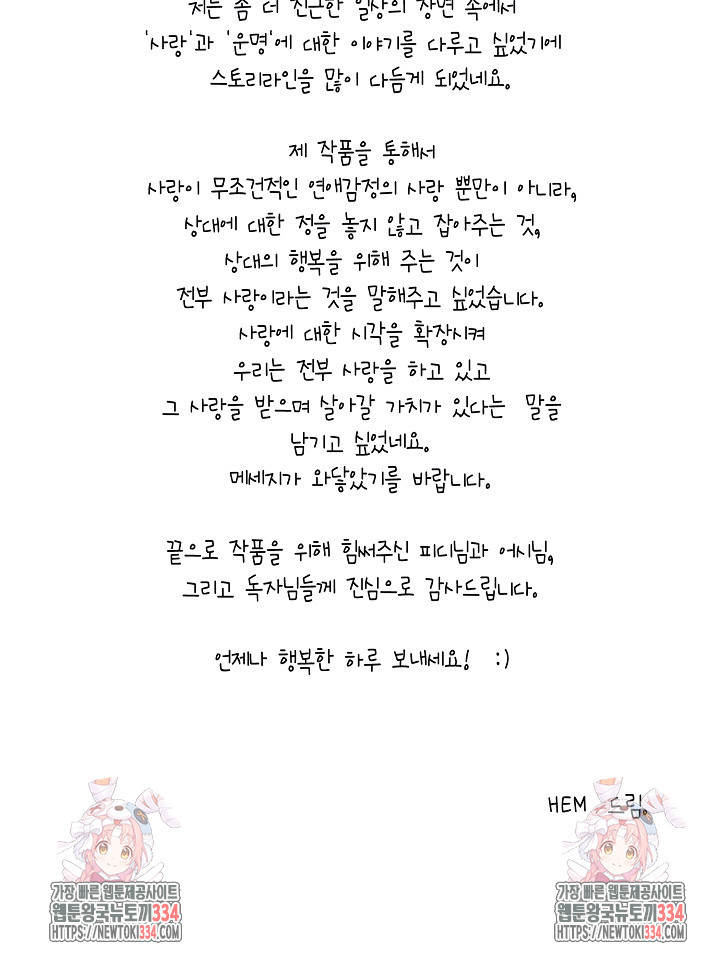 저는 좀 더 친근한 일상의 장면 속에서
'사랑'과 '운명'에 대한 이야기를 다루고 싶었기에
스토리라인을 많이 다듬게 되었네요.
제 작품을 통해서
사랑이 무조건적인 연애감정의 사랑 뿐만이 아니라,
상대에 대한 정을 놓지 않고 잡아주는 것,
상대의 행복을 위해 주는 것이
전부 사랑이라는 것을 말해주고 싶었습니다.
사랑에 대한 시각을 확장시켜
우리는 전부 사랑을 하고 있고
그 사랑을 받으며 살아갈 가치가 있다는 말을
남기고 싶었네요.
메세지가 와닿았기를 바랍니다.
끝으로 작품을 위해 힘써주신 피디님과 어시님,
그리고 독자님들께 진심으로 감사드립니다.
언제나 행복한 하루 보내세요! :)
HEM 드림.
가장 빠른 웹툰제공사이트
웹툰왕국뉴토끼334
HTTPS://NEWTOKI334.COM
가장 빠른 웹툰제공사이트
웹툰왕국뉴토끼334
HTTPS://NEWTOKI334.COM